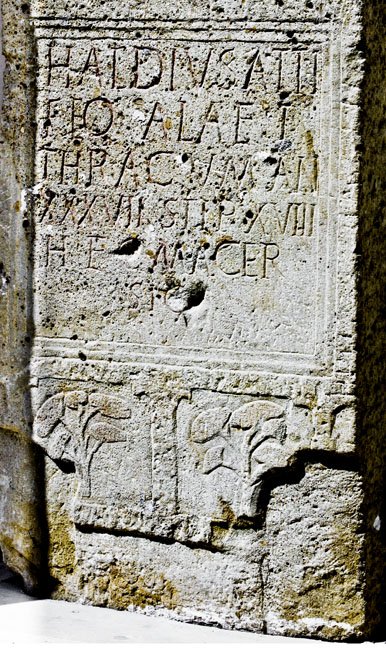 HALDIVS ATTI
F IO ALAE I
THRACVM AN
XXXVII STI P XVIII
H E MACER